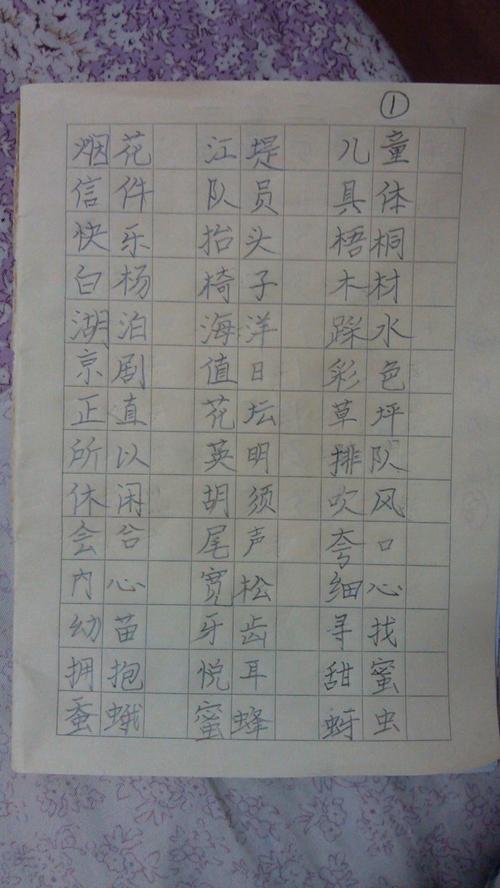 ①
烟花 江堤 儿童
信件 队员 具体
快乐 抬头 梧桐
白杨 椅子 木材
湖泊 海洋 踩水
京剧 值日 彩色
正直 花坛 草坪
所以 英明 排队
休闲 胡须 吹风
会合 尾声 夸口
内心 宽松 细心
幼苗 牙齿 寻找
拥抱 悦耳 甜蜜
蚕蛾 蜜蜂 蚜虫